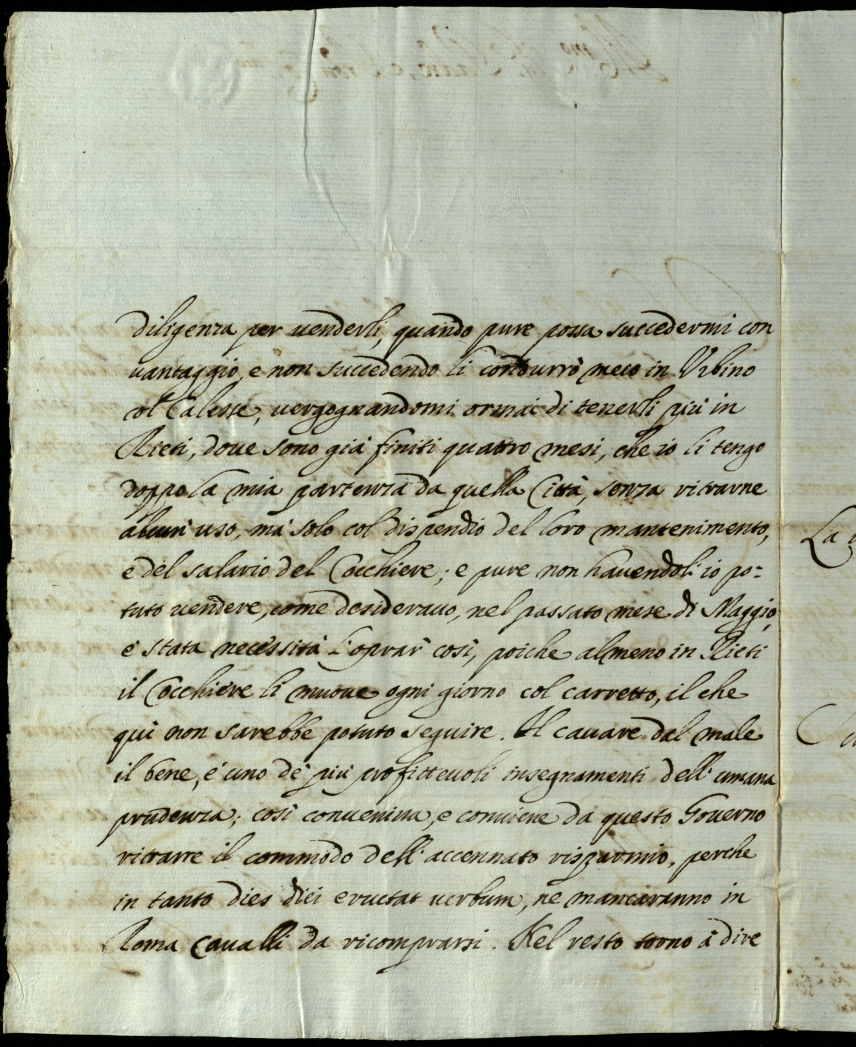 diligenza per venderli, quando pure possa succedermi con
vantaggio, e non succedendo li condurrò meco in Urbino
col Calesse, vergognandomi ormai di tenerli più in
Rieti, dove sono già finiti quattro mesi, che io li tengo
doppo la mia partenza da quella Città, senza ritrarne
alcun' uso, mà solo col dispendio del loro mantenimento,
e del salario del Cocchiere; e pure non havendoli io po=
tuto vendere, come desideravo, nel passato mese di Maggio,
e' stata necèssità l'oprar' così, poiche almeno in Rieti
il Cocchiere li muove ogni giorno col carretto, il che
quì non sarebbe potuto seguire. Il cavare dal male
il bene, é uno de' più profittevoli insegnamenti dell' umana
prudenza; così conveniva, e conviene da questo Governo
ritrarre il commodo dell' accennato risparmio, perche
in tanto dies diei eructat verbum, ne mancaranno in
Roma Cavalli da ricomprarsi. Nel resto torno à dire
La